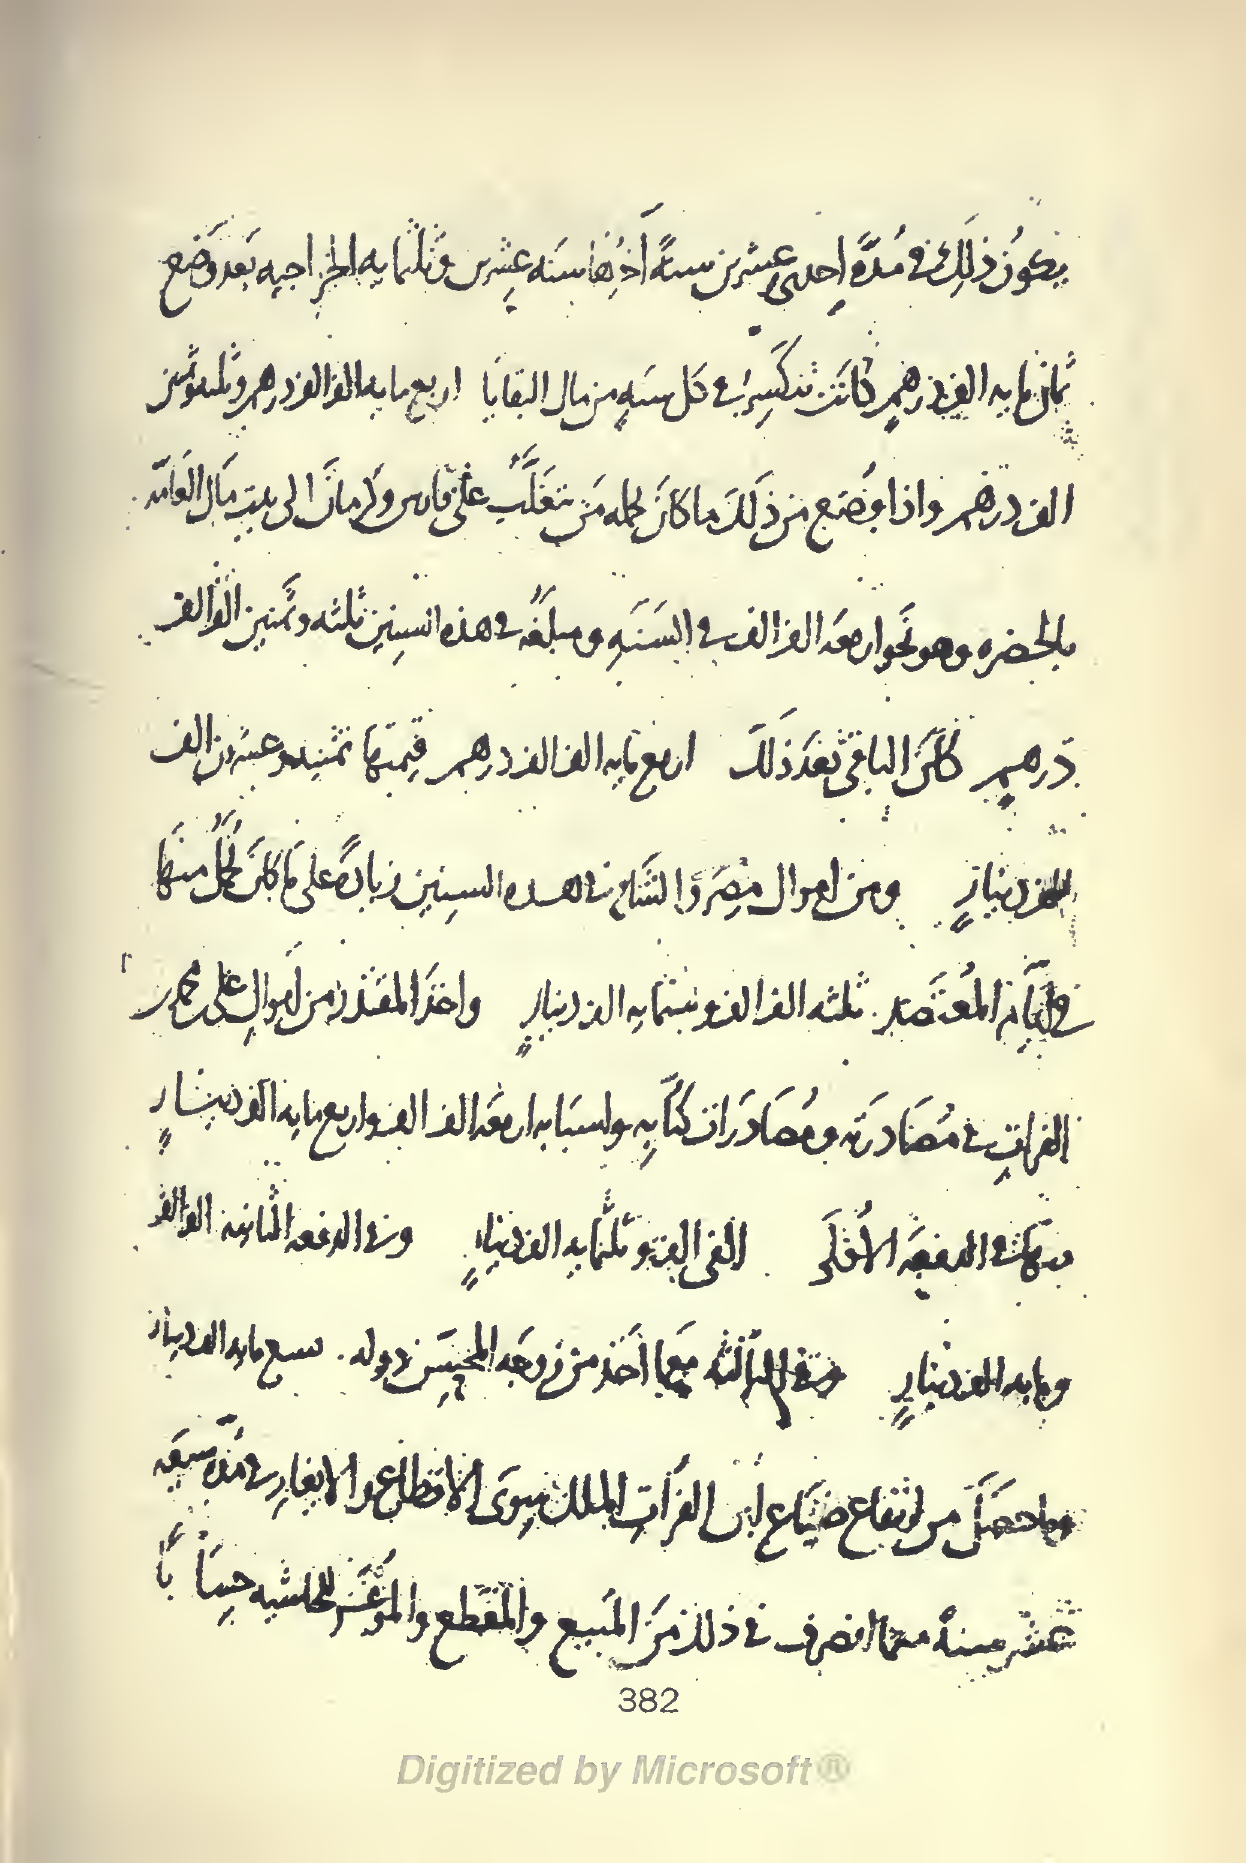 يكون ذلك في مدة احدى عشرين سنة آخرها سنه عشرين وثلثمايه الخراجيه بعد وضع
ثمان مايه الف درهم كانت تنكسر في كل سنه من مال البقايا اربع مايه الف الف درهم وثلثه وثمنين
الف درهم واذا وضع من ذلك ما كان يحمله من تغلب على فارس وكرمان الى بيت مال العامه
بالحضره وهو نحو اربعه الف الف في السنه ومبلغه في هذه السنين ثلثه وثمنين الف الف
درهم كان الباقي بعد ذلك اربع مايه الف الف درهم قيمتها ثمنيه وعشرين الف
الف دينار ومن اموال مصر والشام في هذه السنين زيادة على ما كان يحمل منها
في ايام المعتضد ثلثه الف الف وستمايه الف دينار واخذ المقتدر من اموال على محمد بن
الفرات في مصادرته ومصادرات كتابه واسبابه اربعه الف الف واربع مايه الف دينار
منها في الدفعه الاولى الفي الف وثلثمايه الف دينار وفي الدفعه الثانيه الف الف
ومايه الف دينار وفي الثالثه مع ما اخذ من زوجه المحسن دوله سبع مايه الف دينار
وما حصل من ارتفاع ضياع ابن الفرات الملك سوى الاقطاع والايغار في مدة سبعه
عشر سنة مما انصرف في ذلك من المبيع والمقطع والموغر للحاشيه حسابا
382
Digitized by Microsoft®